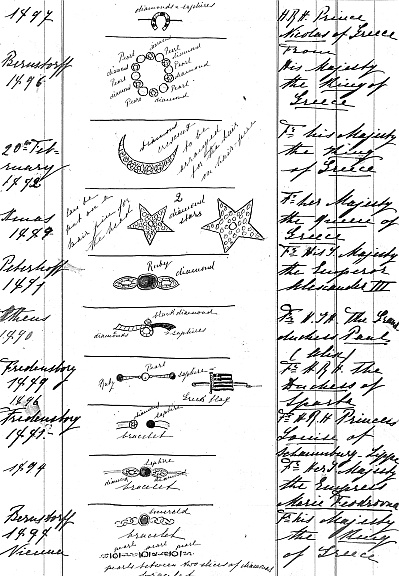 1897
diamonds & sapphires
H.R.H. Prince
Nicolas of Greece
Bernstorff
1896
Pearl
diamond
Pearl
diamond
Pearl
diamond
Pearl
diamond
Pearl
diamond
From
His Majesty
the King of
Greece
20th Feb-
ruary
1892
diamond
crescent
to be
arranged
to the hair
on hair-pins
Fr his Majesty
the King
of Greece
Xmas
1889
can be
put on a
hair pin for
the head
2
diamond
stars
Fr her Majesty
the Queen of
Greece
Peterhoff
1891
Ruby
diamond
Fr His I. Majesty
the Emperor
Alexander III
Athens
1890
black diamond
diamonds
& sapphires
Fr H.I.H. The Grand
duchess Paul
(Alix)
Fredensborg
1889
1896
Ruby
Pearl
sapphire
Greek flag
Fr H.R.H. the
Duchess of
Sparta
Fredensborg
diamond
sapphire
bracelet
Fr H.R.H Princess
Louise of
Schaumburg-Lippe
1894
saphire
diamond
diamond
bracelet
Fr Her I. Majesty
the Empress
Marie Feodrovna
Bernstorff
1897
emerald
bracelet
Fr his Majesty
the King
of Greece
Vienne
pearl pearl pearl
pearls between two slices of diamond
bracelet